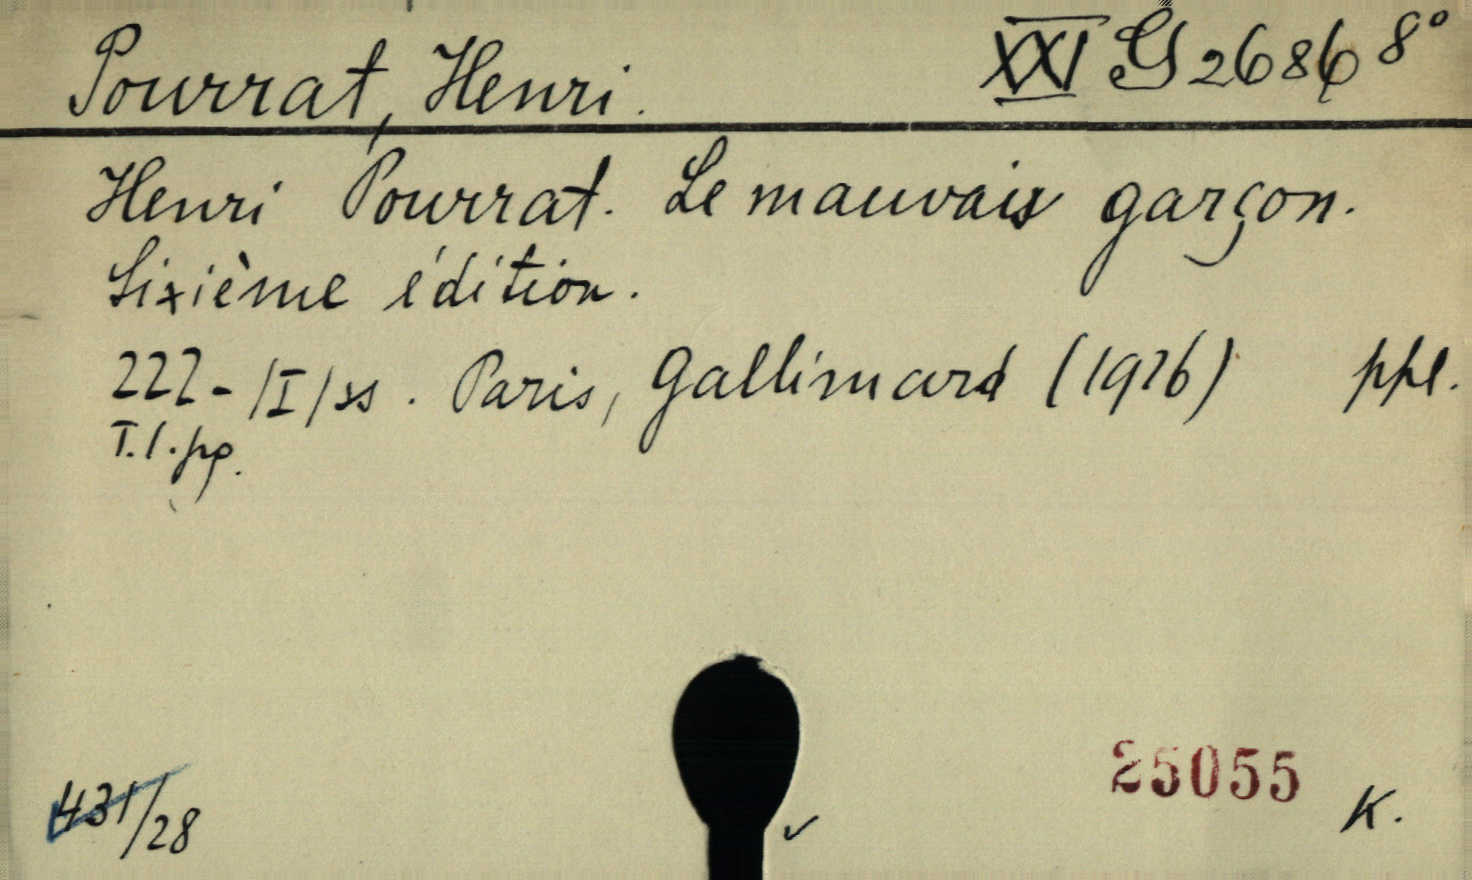 Pourrat, Henri. XXI G 2686 8°
Henri Pourrat. Le mauvais garçon.
Sixième édition.
222-/I/ss. Paris, Gallimard (1926) ppl.
T.l.pp.
25055
431/28 K.